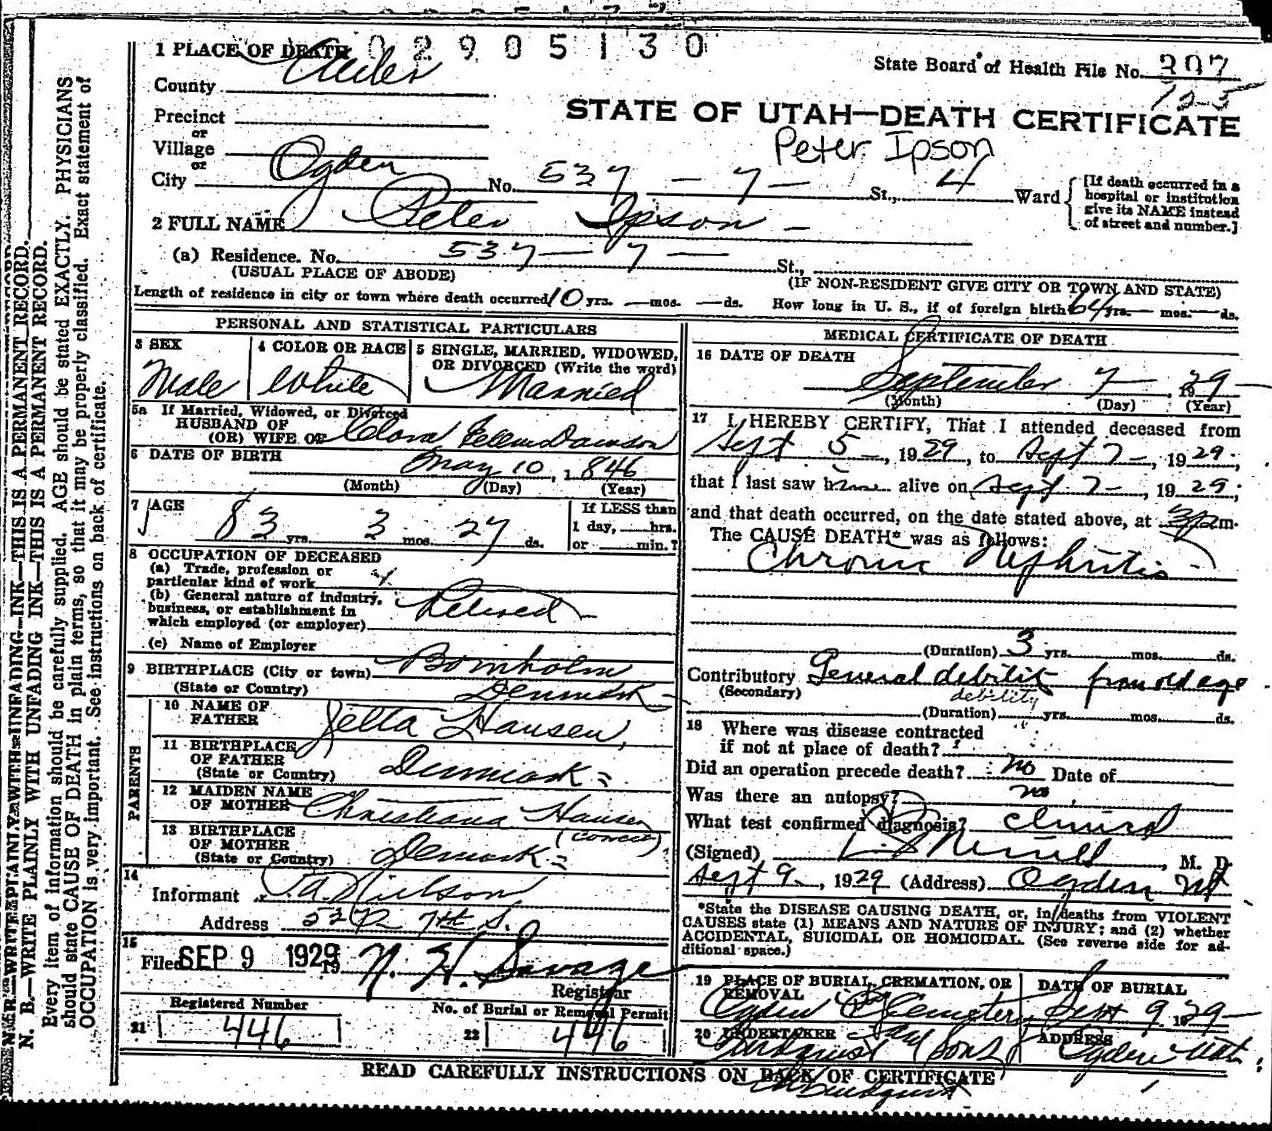 02905130
1 PLACE OF DEATH
State Board of Health File No. 397
125
County Weber
STATE OF UTAH—DEATH CERTIFICATE
Precinct
or
Village
or
Peter Ipson
City Ogden No. 537 - 7 - St., 4 Ward
[If death occurred in a
hospital or institution
give its NAME instead
of street and number.]
2 FULL NAME Peter Ipson -
(a) Residence. No. 537 - 7 - St.,
(USUAL PLACE OF ABODE)
(IF NON-RESIDENT GIVE CITY OR TOWN AND STATE)
Length of residence in city or town where death occurred 10 yrs. — mos. — ds. How long in U. S., if of foreign birth 64 yrs. — mos. — ds.
PERSONAL AND STATISTICAL PARTICULARS
3 SEX
Male
4 COLOR OR RACE
White
5 SINGLE, MARRIED, WIDOWED,
OR DIVORCED (Write the word)
Married
5a If Married, Widowed, or Divorced
HUSBAND OF
(OR) WIFE OF Clara
6 DATE OF BIRTH May 10, 1846
(Month) (Day) (Year)
7 AGE
83 yrs. 3 mos. 27 ds.
If LESS than
1 day, hrs.
or min.?
8 OCCUPATION OF DECEASED
(a) Trade, profession or
particular kind of work
(b) General nature of industry,
business, or establishment in
which employed (or employer) Retired
(c) Name of Employer
9 BIRTHPLACE (City or town) Bornholm
(State or Country) Denmark
PARENTS
10 NAME OF
FATHER Jella Hansen
11 BIRTHPLACE
OF FATHER
(State or Country) Denmark
12 MAIDEN NAME
OF MOTHER Christiana Hansen
13 BIRTHPLACE
OF MOTHER
(State or Country) Denmark
14
Informant Nielson
Address 537 7th S.
15
Filed SEP 9 1929 19 N. H. Savage
Registrar
Registered Number
21 446
No. of Burial or Removal Permit
22 446
MEDICAL CERTIFICATE OF DEATH
16 DATE OF DEATH
September 7 - , 1929
(Month) (Day) (Year)
17 I HEREBY CERTIFY, That I attended deceased from
Sept 5 -, 1929, to Sept 7 -, 1929;
that I last saw him alive on, Sept 7 -, 1929;
and that death occurred, on the date stated above, at m.
The CAUSE DEATH* was as follows:
Chronic Nephritis
(Duration) 3 yrs. mos. ds.
Contributory General debility from old age
(Secondary) debility
(Duration) yrs. mos. ds.
18 Where was disease contracted
if not at place of death?
Did an operation precede death? no Date of
Was there an autopsy? no
What test confirmed diagnosis? Clinical
(Signed) Merrill, M. D.
Sept 9, 1929 (Address) Ogden Ut
*State the DISEASE CAUSING DEATH, or, in deaths from VIOLENT
CAUSES state (1) MEANS AND NATURE OF INJURY; and (2) whether
ACCIDENTAL, SUICIDAL OR HOMICIDAL. (See reverse side for ad-
ditional space.)
19 PLACE OF BURIAL, CREMATION, OR
REMOVAL
Ogden Cemetery
DATE OF BURIAL
Sept 9 1929
20 UNDERTAKER
Lindquist & Sons
ADDRESS
Ogden Utah
READ CAREFULLY INSTRUCTIONS ON BACK OF CERTIFICATE
Lindquist
N. B.—WRITE PLAINLY WITH UNFADING INK—THIS IS A PERMANENT RECORD.
Every item of information should be carefully supplied. AGE should be stated EXACTLY. PHYSICIANS
should state CAUSE OF DEATH in plain terms, so that it may be properly classified. Exact statement of
OCCUPATION is very important. See instructions on back of certificate.